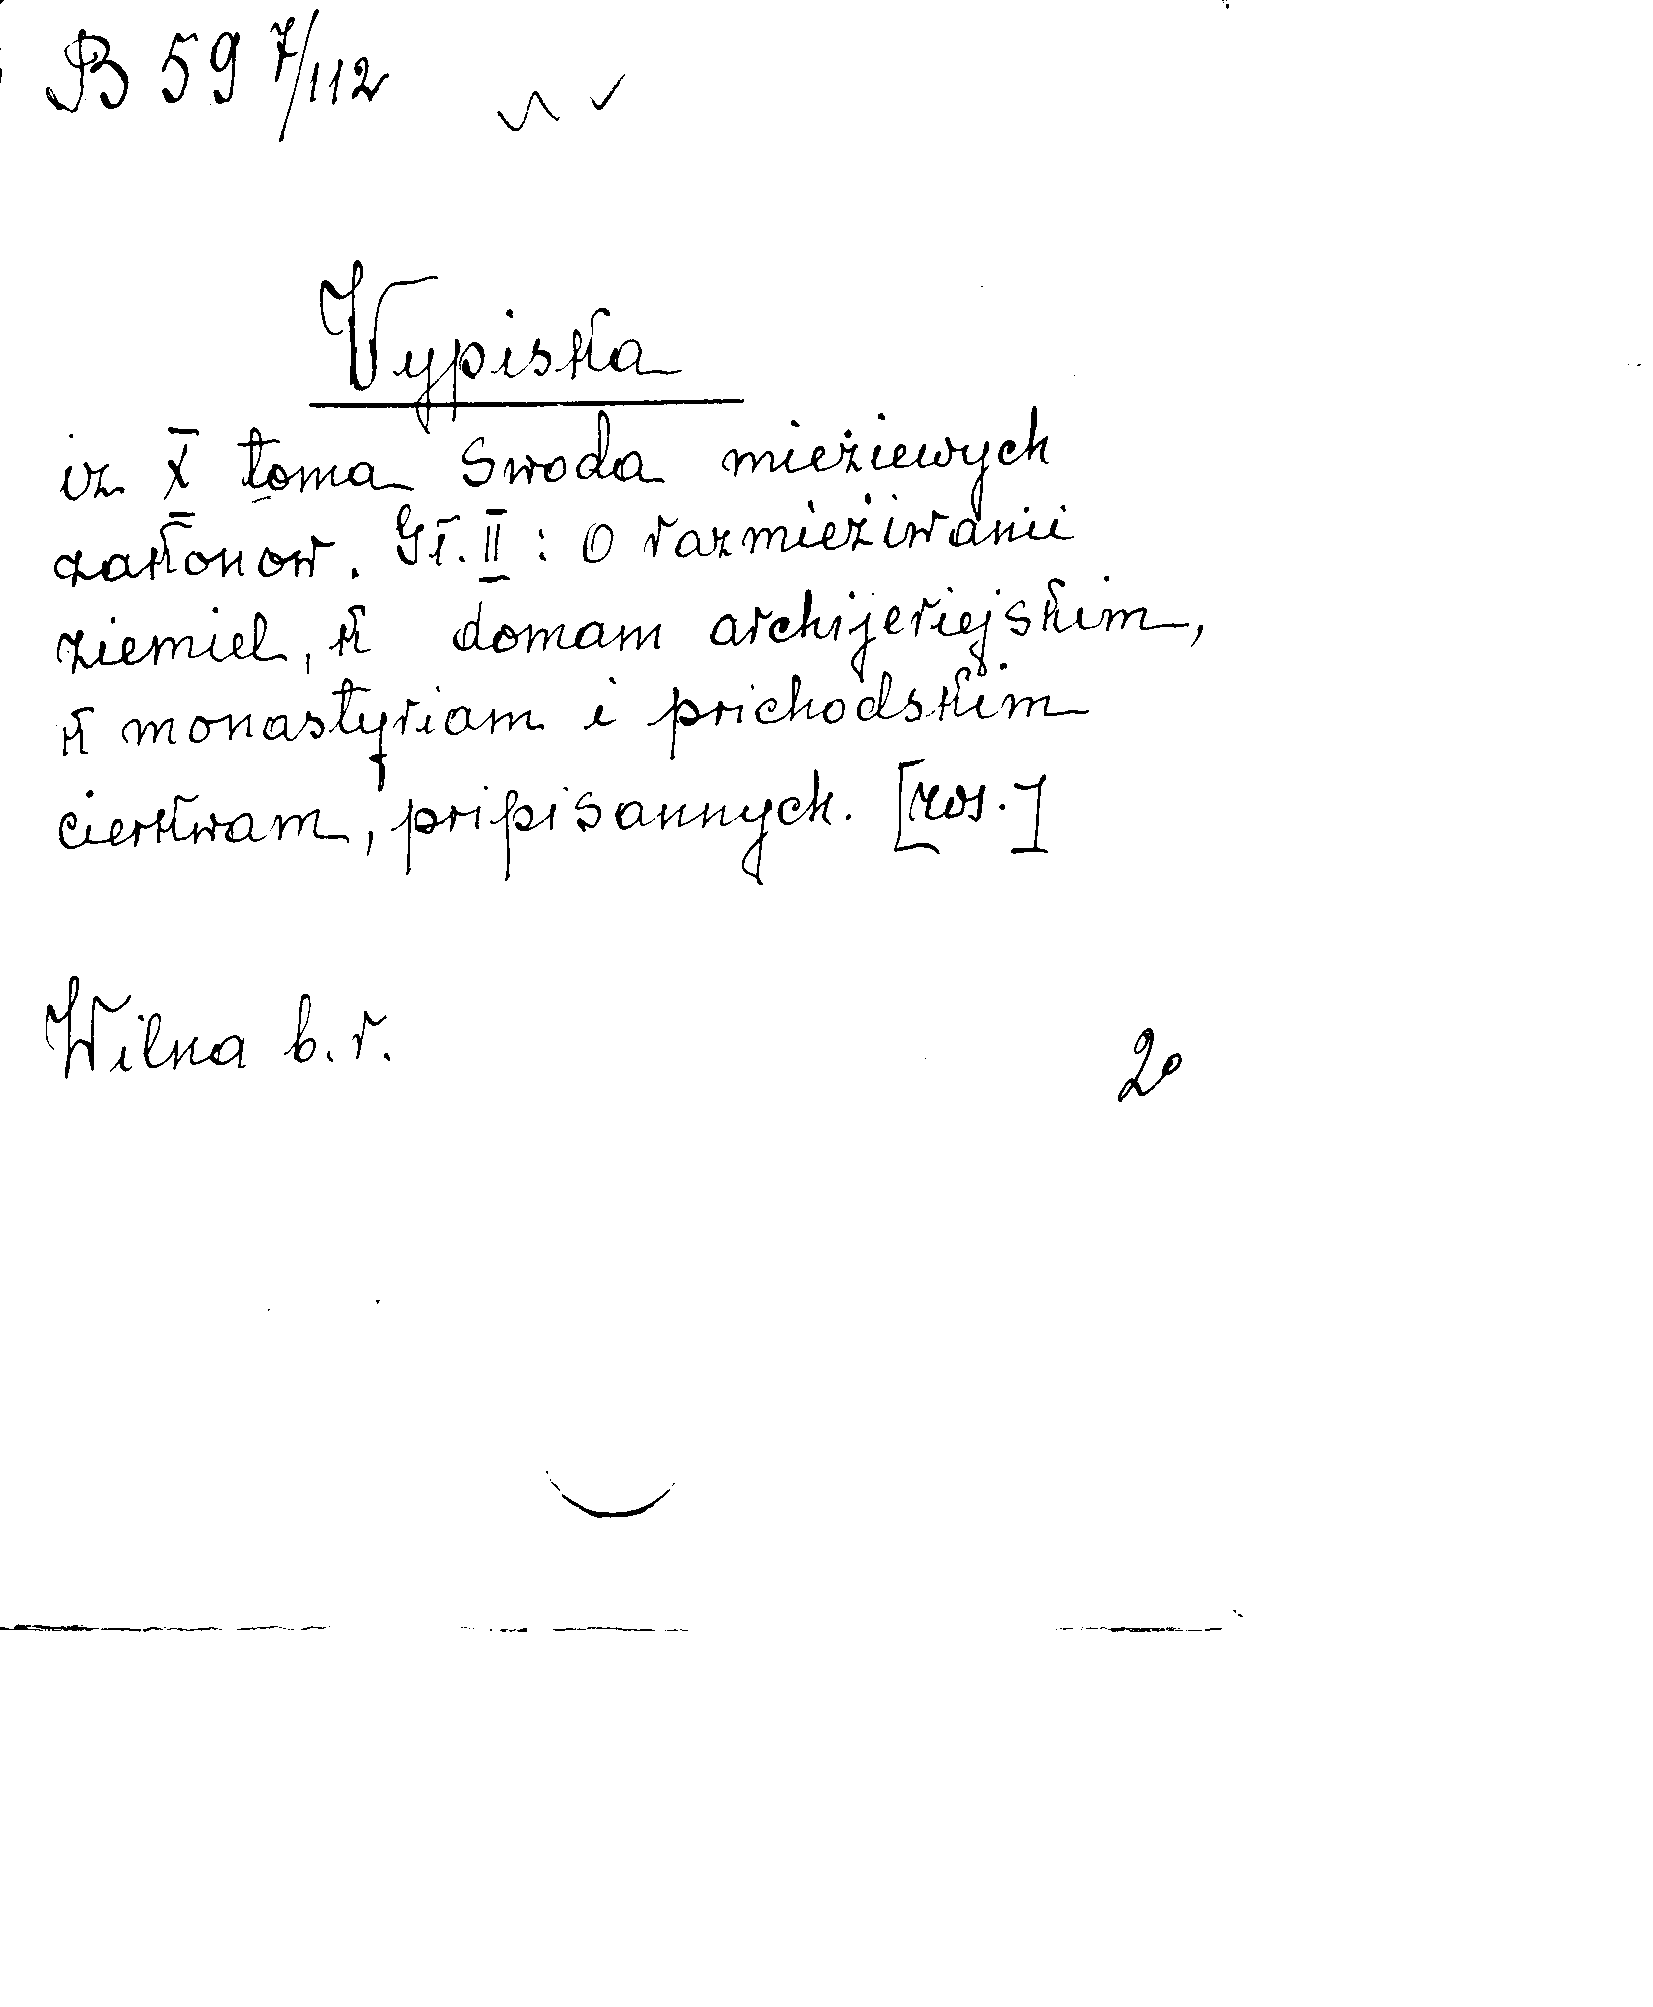 B 59 7/112
Vypiska
iz X toma Swoda mieżiewych
zakonow. Gł. II : O razmieżiwanii
ziemiel, k domam archijeriejskim,
k monastyriam i prichodskim
cierkwam, pripisannych. [ros.]
Wilna b. r.
20